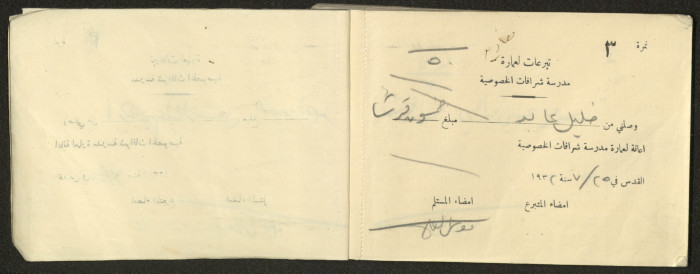 نمرة ٣
٥٠
تبرعات لعمارة
مدرسة شرافات الخصوصية
وصلني من خليل عابد مبلغ خمسون قرشا
اعانة لعمارة مدرسة شرافات الخصوصية
القدس في ٢٥/٧ سنة ١٩٣٢
امضاء المتبرع امضاء المستلم